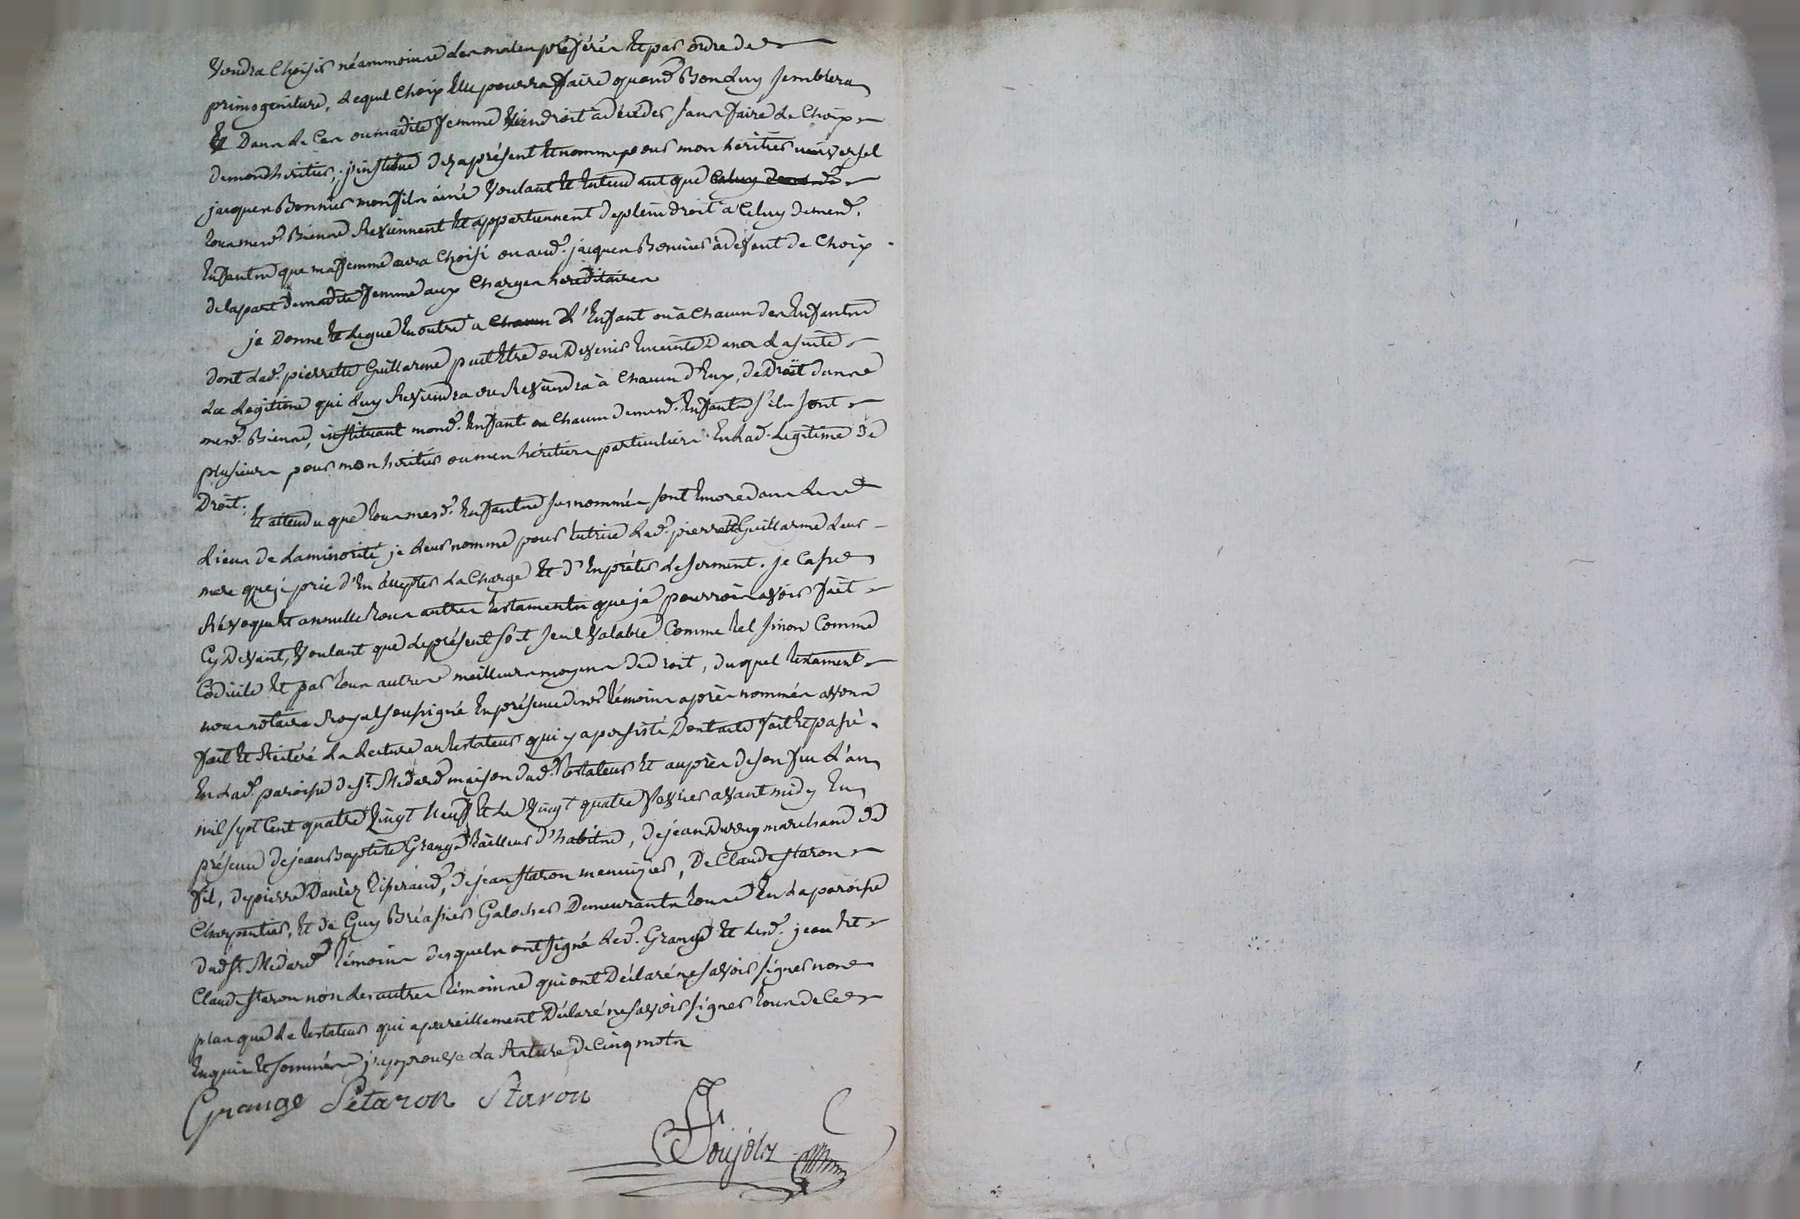 voudra choisir néammoins les males préférés et par ordre de
primogeniture, lequel choix elle pourra faire quand bon luy semblera
et dans le cas ou madite femme viendroit a deceder sans faire le choix
de mond heritier, j'institue dez aprésent et nomme pour mon héritier universel
jacques Bonnier mon fils ainé voulant et entendant que
tous mesd. Biens Reviennent et appartiennent de plein droit a Celuy de mesd.
enfants que ma femme aura choisi ou aud. jacques Bonnier a defaut de Choix
de la part de madite femme aux Charges héréditaires
je donne et legue en outre a l'Enfant ou à chacun des Enfants
dont lad. pierrette Guillarme peut Etre ou devenir Enceinte dans la suite
La Legitime qui luy Reviendra ou Reviendra à chacun d'Eux, de Droit dans
mesd. Biens, instituant mond. Enfant ou chacun de mesd. Enfants s'ils sont
plusieurs pour mon héritier ou mes héritiers particuliers En lad. Legitime de
Droit.
Et attendu que tous mesd. Enfants susnommés sont Encore dans les
Liens de la minorité je leur nomme pour tutrice lad. pierrette Guillarme leur
mere que je prie d'En accepter la Charge Et d'En prêter le serment. je Casse
Révoque et annulle tous autres testaments que je pourrois avoir fait
Cy devant, voulant que le présent soit seul valable Comme tel sinon Comme
Codicile et par tous autres meilleurs moyens de droit, duquel testament
nous notaire Royal soussigné En présence des témoins après nommés avons
fait et Réitéré la lecture au testateur qui y a persisté Dont acte fait et passé
En lad. paroisse de St. Medard maison dud. testateur et auprès de son feu l'an
mil sept cent quatre vingt neuf et le vingt quatre fevrier avant midy En
présence de jean Baptiste Grange tailleur d'habits, de jean marchand de
fil, de pierre tisserand, de jean staron menuizier, de Claude staron
Charpentier, et de Guy Bréassier Galocher Demeurants tous En la paroisse
dud St. Medard témoins desquels ont signé led. Grange Et lesd. jean Et
Claude staron non les autres témoins qui ont Déclaré ne savoir signer non
plus que le testateur qui a pareillement Déclaré ne savoir signer tous de ce
Enquis et sommés j'approuve la Rature de Cinq mots
Grange Sétaron Staron
Poujolz